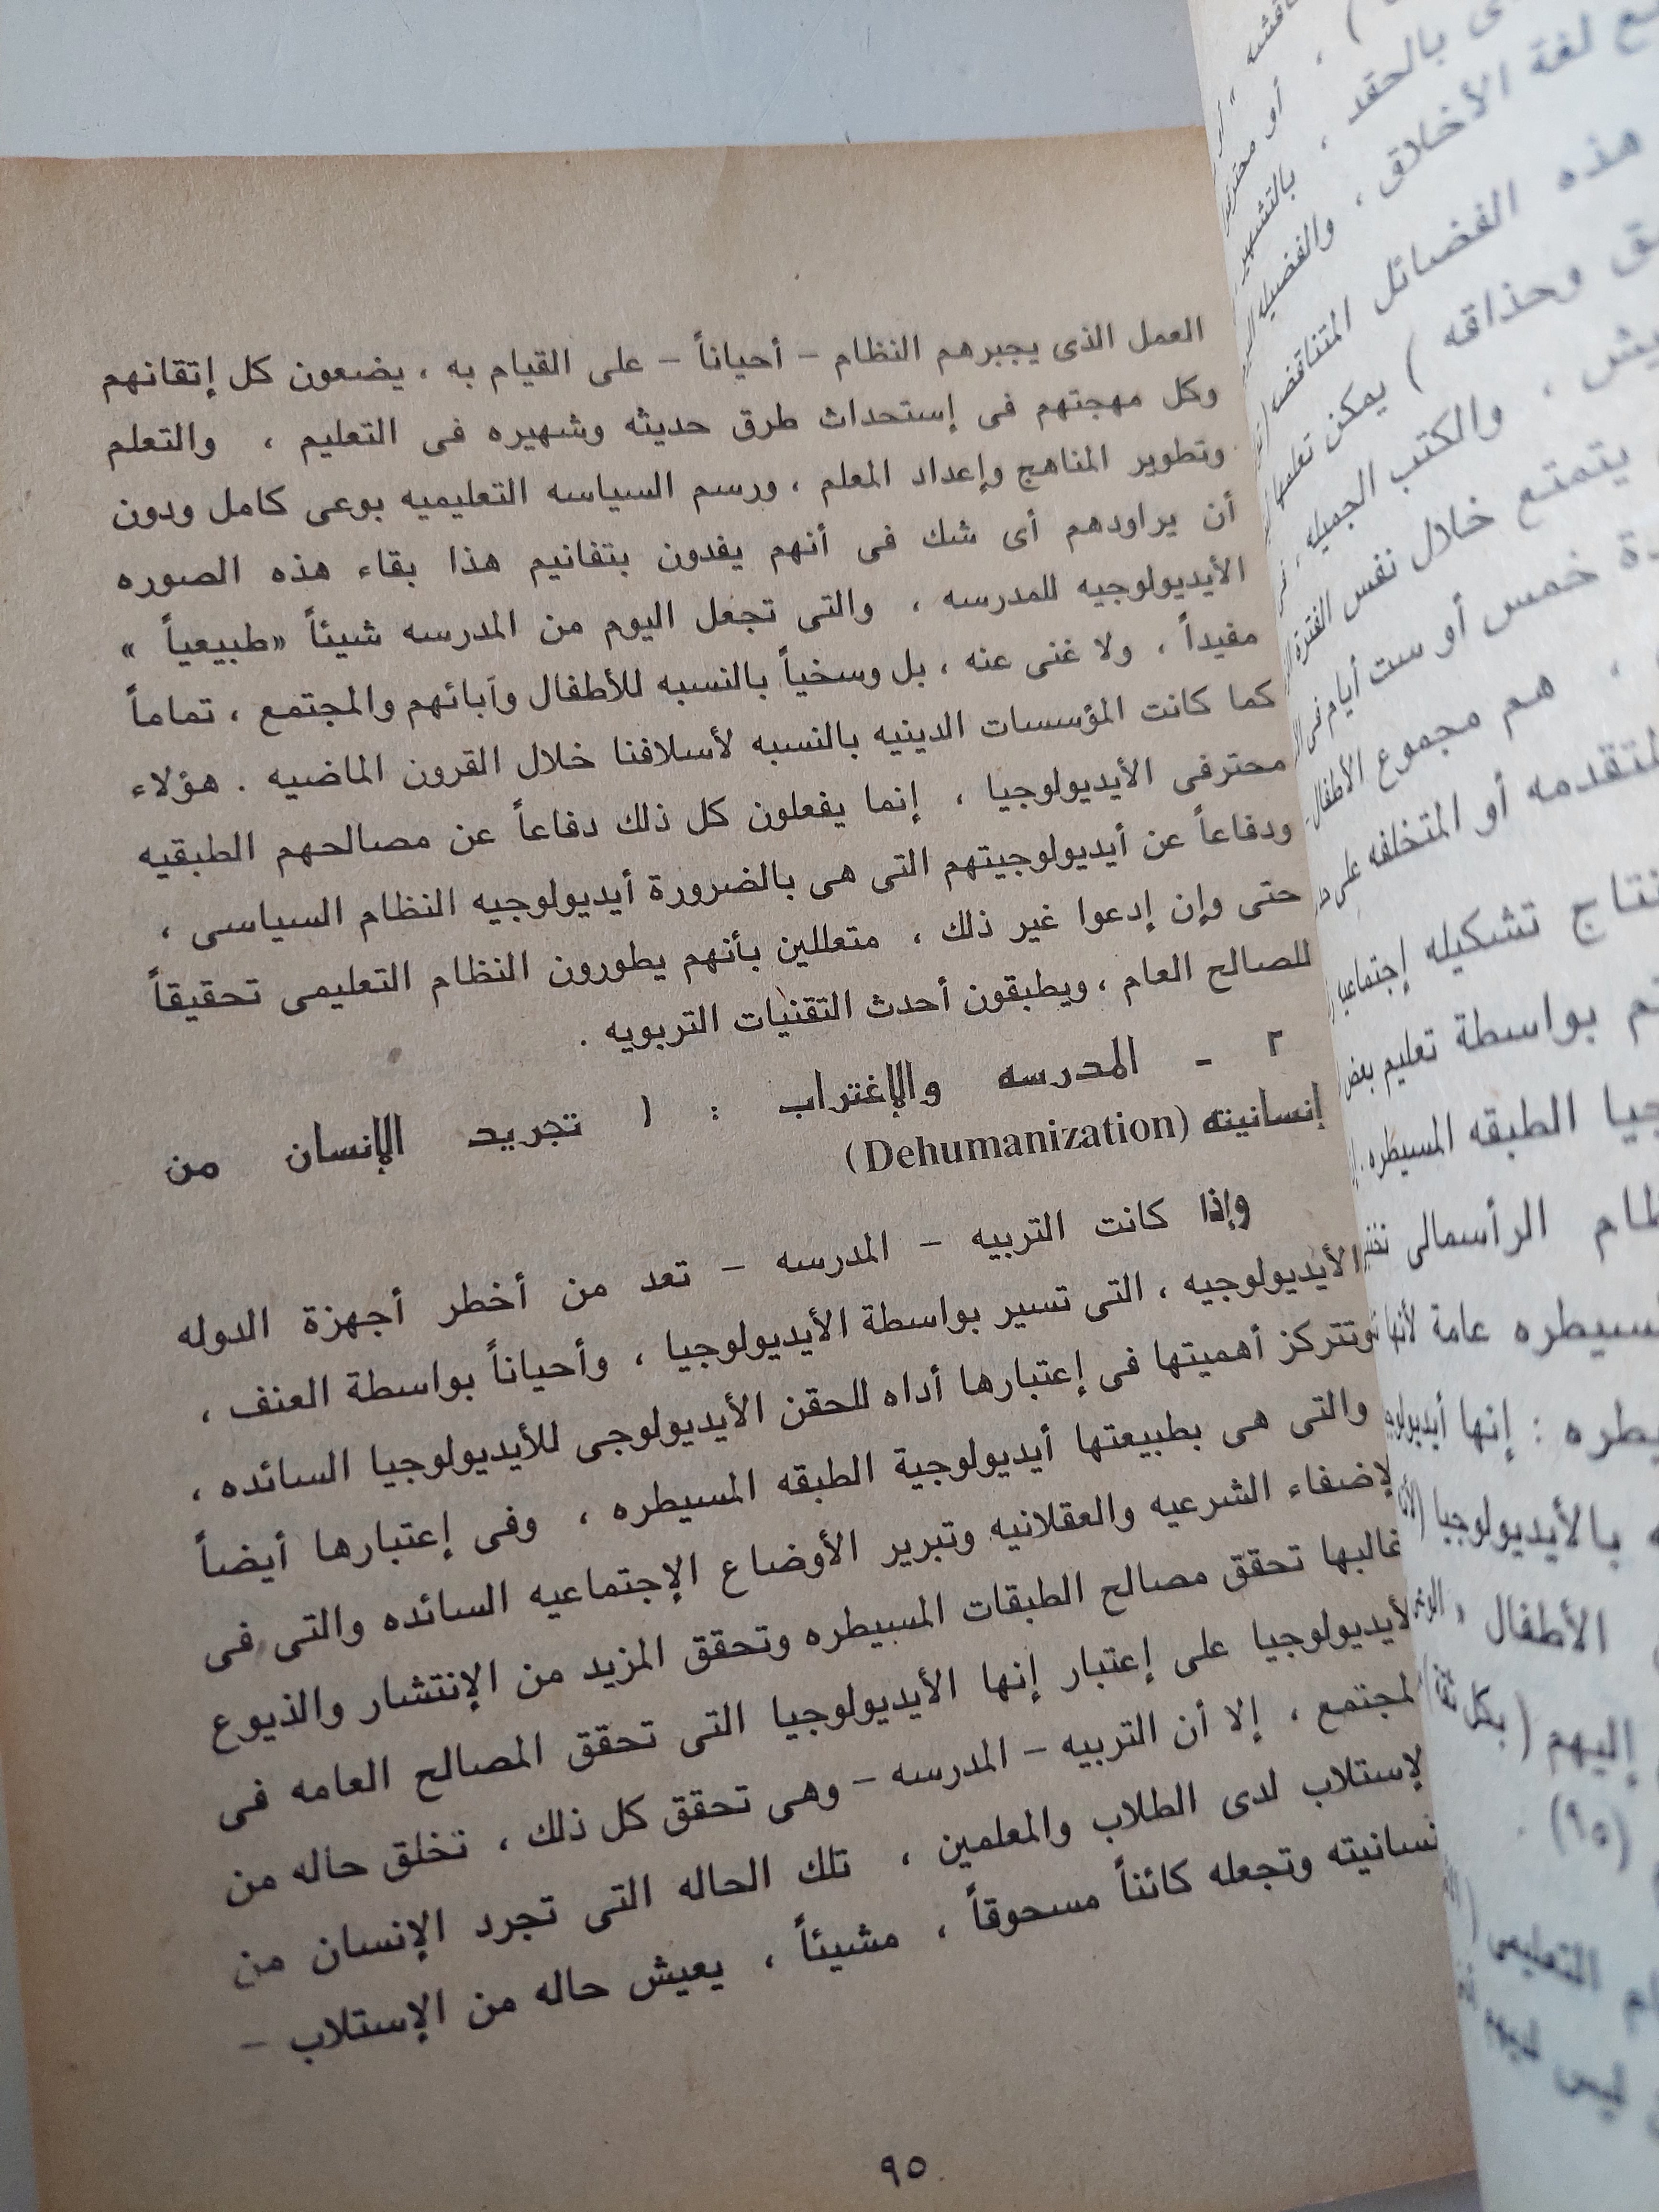 العمل الذى يجبرهم النظام – أحياناً – على القيام به ، يضعون كل إتقانهم
وكل مهجتهم فى إستحداث طرق حديثه وشهيره فى التعليم ، والتعلم
وتطوير المناهج وإعداد المعلم ، ورسم السياسه التعليميه بوعى كامل ودون
أن يراودهم أى شك فى أنهم يفدون بتفانيم هذا بقاء هذه الصوره
الأيديولوجيه للمدرسه ، والتى تجعل اليوم من المدرسه شيئاً «طبيعياً »
مفيداً ، ولا غنى عنه ، بل وسخياً بالنسبه للأطفال وآبائهم والمجتمع ، تماماً
كما كانت المؤسسات الدينيه بالنسبه لأسلافنا خلال القرون الماضيه . هؤلاء
محترفى الأيديولوجيا ، إنما يفعلون كل ذلك دفاعاً عن مصالحهم الطبقيه
ودفاعاً عن أيديولوجيتهم التى هى بالضرورة أيديولوجيه النظام السياسى ،
حتى وإن إدعوا غير ذلك ، متعللين بأنهم يطورون النظام التعليمى تحقيقاً
للصالح العام ، ويطبقون أحدث التقنيات التربويه .
٢ – المدرسه والإغتراب : ( تجريد الإنسان من
إنسانيته (Dehumanization)
وإذا كانت التربيه – المدرسه – تعد من أخطر أجهزة الدوله
الأيديولوجيه ، التى تسير بواسطة الأيديولوجيا ، وأحياناً بواسطة العنف ،
وتتركز أهميتها فى إعتبارها أداه للحقن الأيديولوجى للأيديولوجيا السائده ،
والتى هى بطبيعتها أيديولوجية الطبقه المسيطره ، وفى إعتبارها أيضاً
لإضفاء الشرعيه والعقلانيه وتبرير الأوضاع الإجتماعيه السائده والتى فى
غالبها تحقق مصالح الطبقات المسيطره وتحقق المزيد من الإنتشار والذيوع
لأيديولوجيا على إعتبار إنها الأيديولوجيا التى تحقق المصالح العامه فى
لمجتمع ، إلا أن التربيه – المدرسه – وهى تحقق كل ذلك ، تخلق حاله من
لإستلاب لدى الطلاب والمعلمين ، تلك الحاله التى تجرد الإنسان من
نسانيته وتجعله كائناً مسحوقاً ، مشيئاً ، يعيش حاله من الإستلاب –
٩٥
بالحقد ، بالتشهير
لغة الأخلاق ، والفضيله
هذه الفضائل المتناقضه
وحذاقه ) يمكن تعليمها
، والكتب الجميله
يتمتع خلال نفس الفترة
خمس أو ست أيام فى
، هم مجموع الأطفال
المتقدمه أو المتخلفه على
تشكيله إجتماعيه
بواسطة تعليم بعض
الطبقه المسيطره .
الرأسمالى
عامة لأنها
: إنها
بالأيديولوجيا
الأطفال
إليهم ( بكل
(٩٥) .
التعليمى